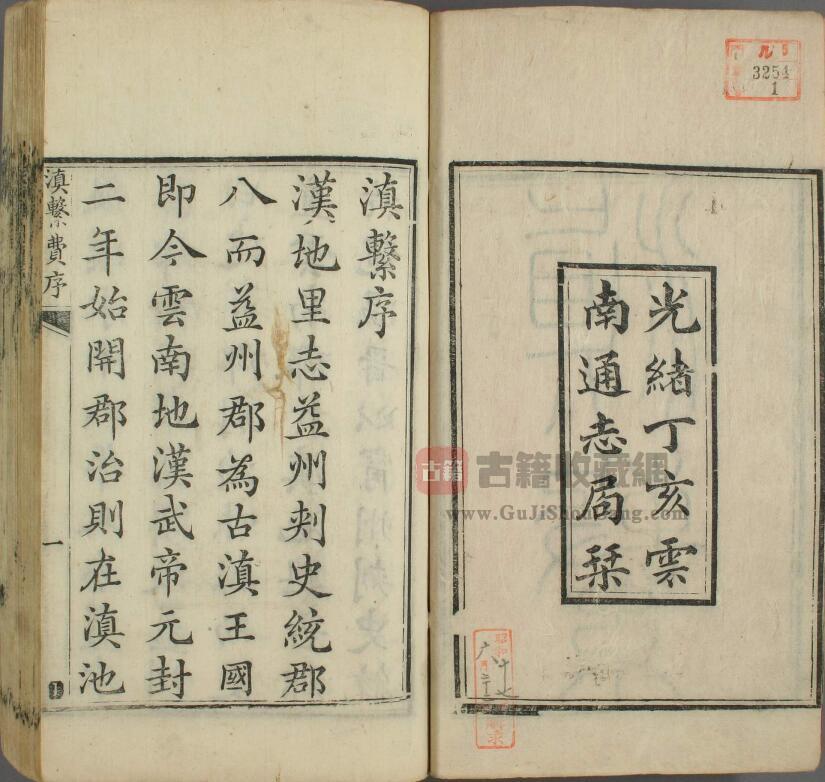 光緒丁亥雲
南通志局栞
滇繫序
漢地里志益州刾史統郡
八而益州郡為古滇王國
即今雲南地漢武帝元封
二年始開郡治則在滇池
滇繫費序
一
古籍
古籍收藏網
www.GuJiShouCang.com
九 5
3254
1
昭和十七
六月